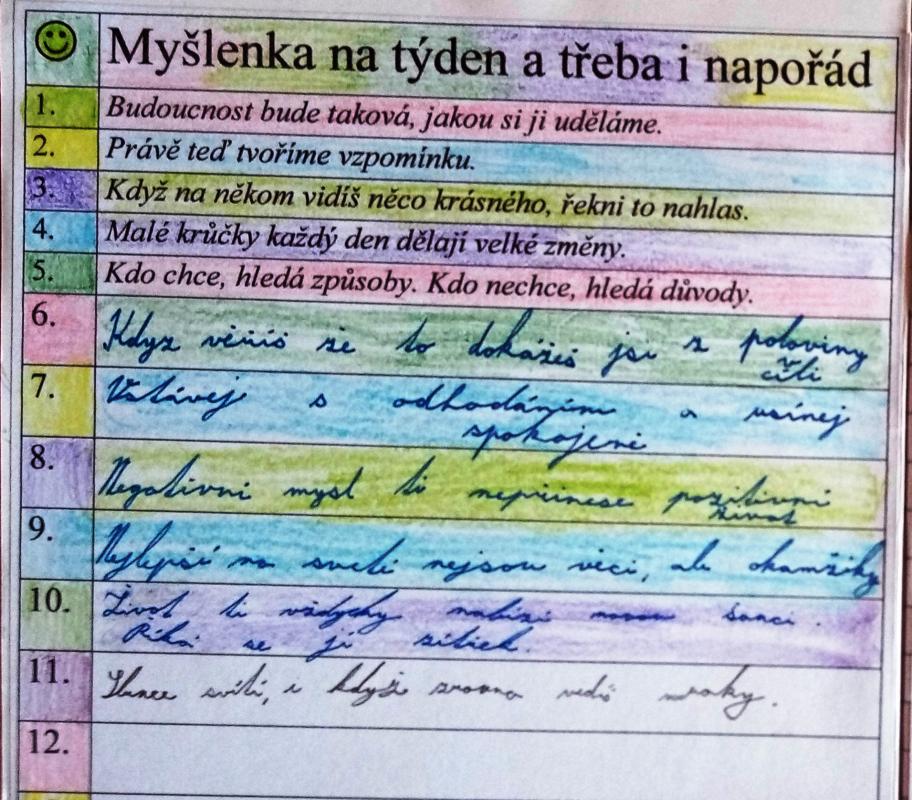 Myšlenka na týden a třeba i napořád
1. Budoucnost bude taková, jakou si ji uděláme.
2. Právě teď tvoříme vzpomínku.
3. Když na někom vidíš něco krásného, řekni to nahlas.
4. Malé krůčky každý den dělají velké změny.
5. Kdo chce, hledá způsoby. Kdo nechce, hledá důvody.
6. Kdyz věříš že to dokážeš jsi z poloviny
cíli
7. Vstávej s odhodáním a usínej
spokojeně
8. Negativní mysl ti nepřinese pozitivní
život
9. Nejlepší na světě nejsou věci, ale okamžiky
10. Život ti vždycky nabízí novou šanci.
Říká se jí zítřek.
11. Slunce svítí, i když zrovna vidíš mraky.
12.